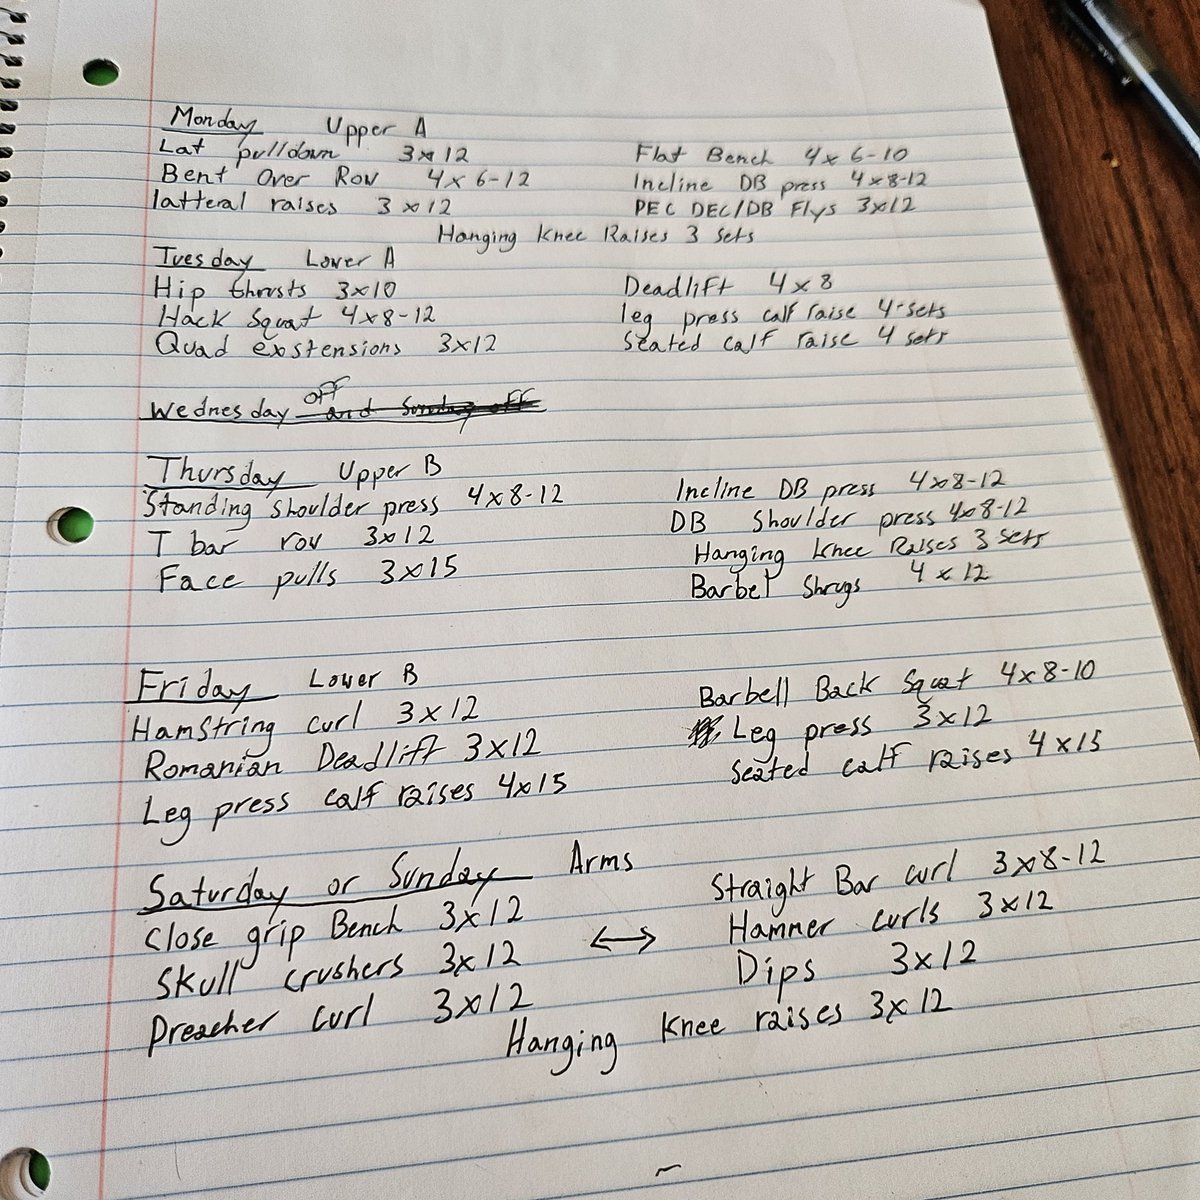 Monday Upper A
Lat pulldown 3x12 Flat Bench 4x 6-10
Bent Over Row 4x 6-12 Incline DB press 4x8-12
latteral raises 3x12 PEC DEC/DB Flys 3x12
Hanging Knee Raises 3 sets
Tuesday Lower A
Hip thrusts 3x10 Deadlift 4x8
Hack Squat 4x8-12 leg press calf raise 4-sets
Quad exstensions 3x12 Seated calf raise 4 sets
Wednesday off and Sunday off
Thursday Upper B
Standing shoulder press 4x8-12 Incline DB press 4x8-12
T bar row 3x12 DB Shoulder press 4x8-12
Face pulls 3x15 Hanging Knee Raises 3 sets
Barbel Shrugs 4x12
Friday Lower B
HamString curl 3x12 Barbell Back Squat 4x8-10
Romanian Deadlift 3x12 Leg press 3x12
Leg press calf raises 4x15 Seated calf raises 4x15
Saturday or Sunday Arms
Close grip Bench 3x12 Straight Bar curl 3x8-12
Skull crushers 3x12 ↔ Hammer curls 3x12
Preacher curl 3x12 Dips 3x12
Hanging Knee raises 3x12